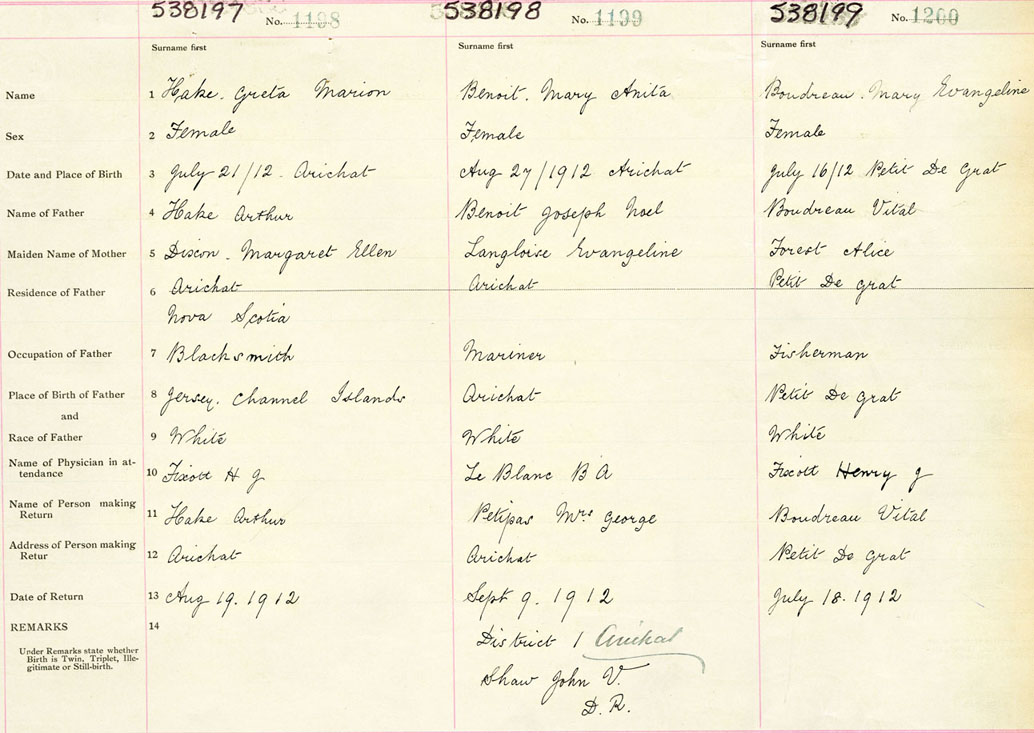 538197 No. 1198 538198 No. 1199 538199 No. 1200
Surname first Surname first Surname first
Name 1 Hake. Greta Marion Benoit. Mary Anita Boudreau. Mary Evangeline
Sex 2 Female Female Female
Date and Place of Birth 3 July 21/12. Arichat Aug 27/1912 Arichat July 16/12 Petit De Grat
Name of Father 4 Hake Arthur Benoit Joseph Noel Boudreau Vital
Maiden Name of Mother 5 Discon. Margaret Ellen Langloise Evangeline Forest Alice
Residence of Father 6 Arichat Arichat Petit De Grat
Nova Scotia
Occupation of Father 7 Blacksmith Mariner Fisherman
Place of Birth of Father 8 Jersey. Channel Islands Arichat Petit De Grat
and
Race of Father 9 White White White
Name of Physician in at-
tendance 10 Fixott H J Le Blanc B A Fixott Henry J
Name of Person making
Return 11 Hake Arthur Petipas Mrs George Boudreau Vital
Address of Person making
Retur 12 Arichat Arichat Petit De Grat
Date of Return 13 Aug 19. 1912 Sept 9. 1912 July 18. 1912
REMARKS 14
District 1 Arichat
Under Remarks state whether
Birth is Twin, Triplet, Ille-
gitimate or Still-birth.
Shaw John V.
D. R.